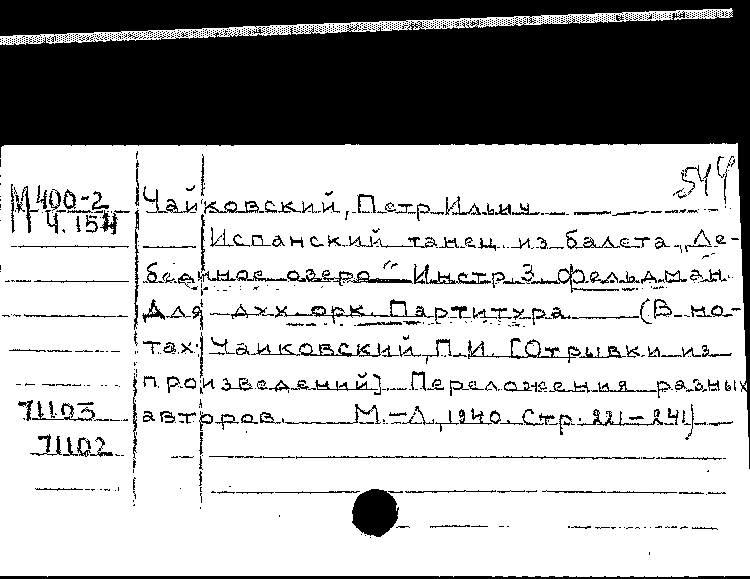 544
М400-2 Чайковский, Петр Ильич
Ч.154
Испанский танец из балета „Ле-
бединое озеро" Инстр. З. Фельдман.
Для дух. орк. Партитура (В но-
тах: Чайковский, П.И. [Отрывки из
произведений] Переложения разных
71103 авторов. М.-Л., 1940. Стр. 221-241)
71102